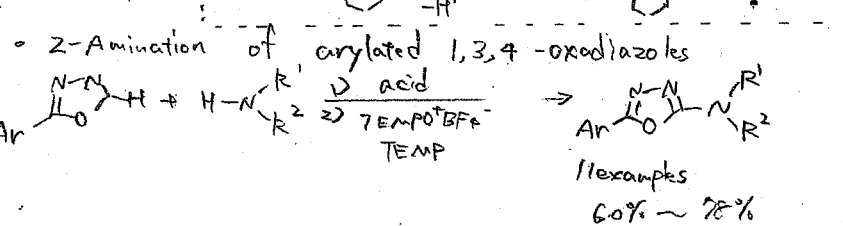 -H
• 2-Amination of arylated 1,3,4-oxadiazoles
N-N -H + H-N R¹ R² 1) acid 2) TEMPO⁺BF₄⁻ TEMP → N-N N R¹ R²
Ar O Ar O
11 examples
60% ~ 78%